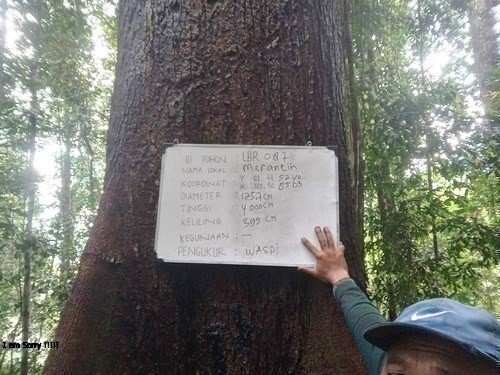 ID POHON : LBR 087
NAMA LOKAL : Merantih
KOORDINAT : Y 01 44 5240
X 101 30 0563
DIAMETER : 125,7 CM
TINGGI : 4000 CM
KELILING : 395 CM
KEGUNAAN : —
PENGUKUR : WASDI
I am Sorry !!!!!